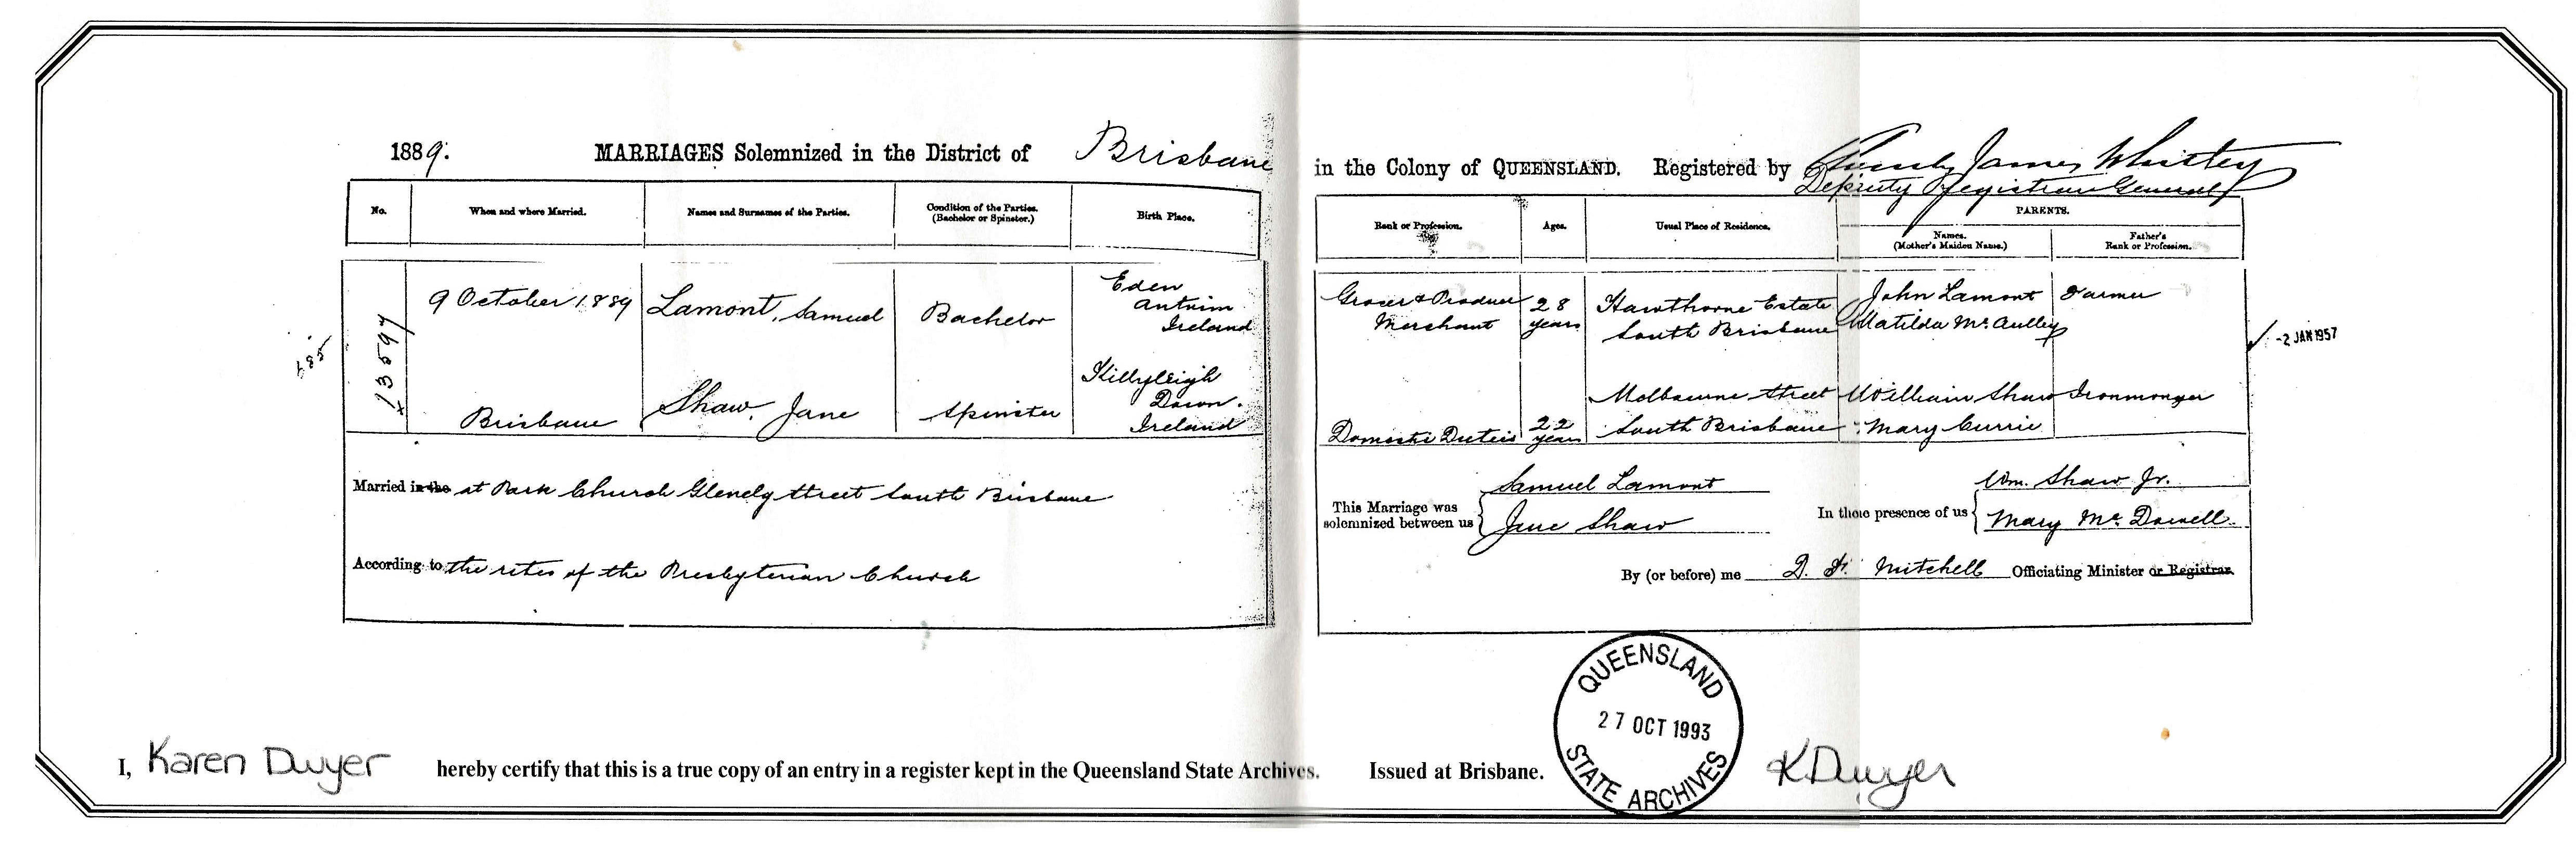 1889. MARRIAGES Solemnized in the District of Brisbane in the Colony of QUEENSLAND. Registered by James Whistey
Deputy Registrar General
No. When and where Married. Names and Surnames of the Parties. Condition of the Parties. (Bachelor or Spinster.) Birth Place. Rank or Profession. Ages. Usual Place of Residence. PARENTS. Names. (Mother's Maiden Name.) Father's Rank or Profession.
9 October 1889 Lamont, Samuel Bachelor Eden Antrim Ireland Grocer & Produce Merchant 28 years Hawthorne Estate South Brisbane John Lamont Matilda McAulley Farmer
-2 JAN 1957
Brisbane Shaw, Jane Spinster Killyleigh Down. Ireland Domestic Duties 22 years Melbourne Street South Brisbane William Shaw Mary Currie Ironmonger
Married in the at Park Church Glenelg Street South Brisbane
According to the rites of the Presbyterian Church
This Marriage was solemnized between us { Samuel Lamont
Jane Shaw
In the presence of us { Wm. Shaw Jr.
Mary McDowell
By (or before) me Mitchell Officiating Minister or Registrar.
QUEENSLAND
27 OCT 1993
STATE ARCHIVES
I, Karen Dwyer hereby certify that this is a true copy of an entry in a register kept in the Queensland State Archives. Issued at Brisbane. K Dwyer